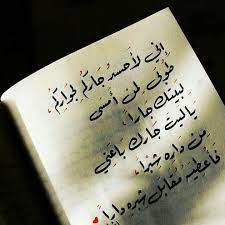 إني لأحسد جاركم لجواركم
طوبى لمن أمسى
لبيتك جاراً
ياليت جارك باعني
من داره شبراً
فأعطيه مقابل شبره داراً